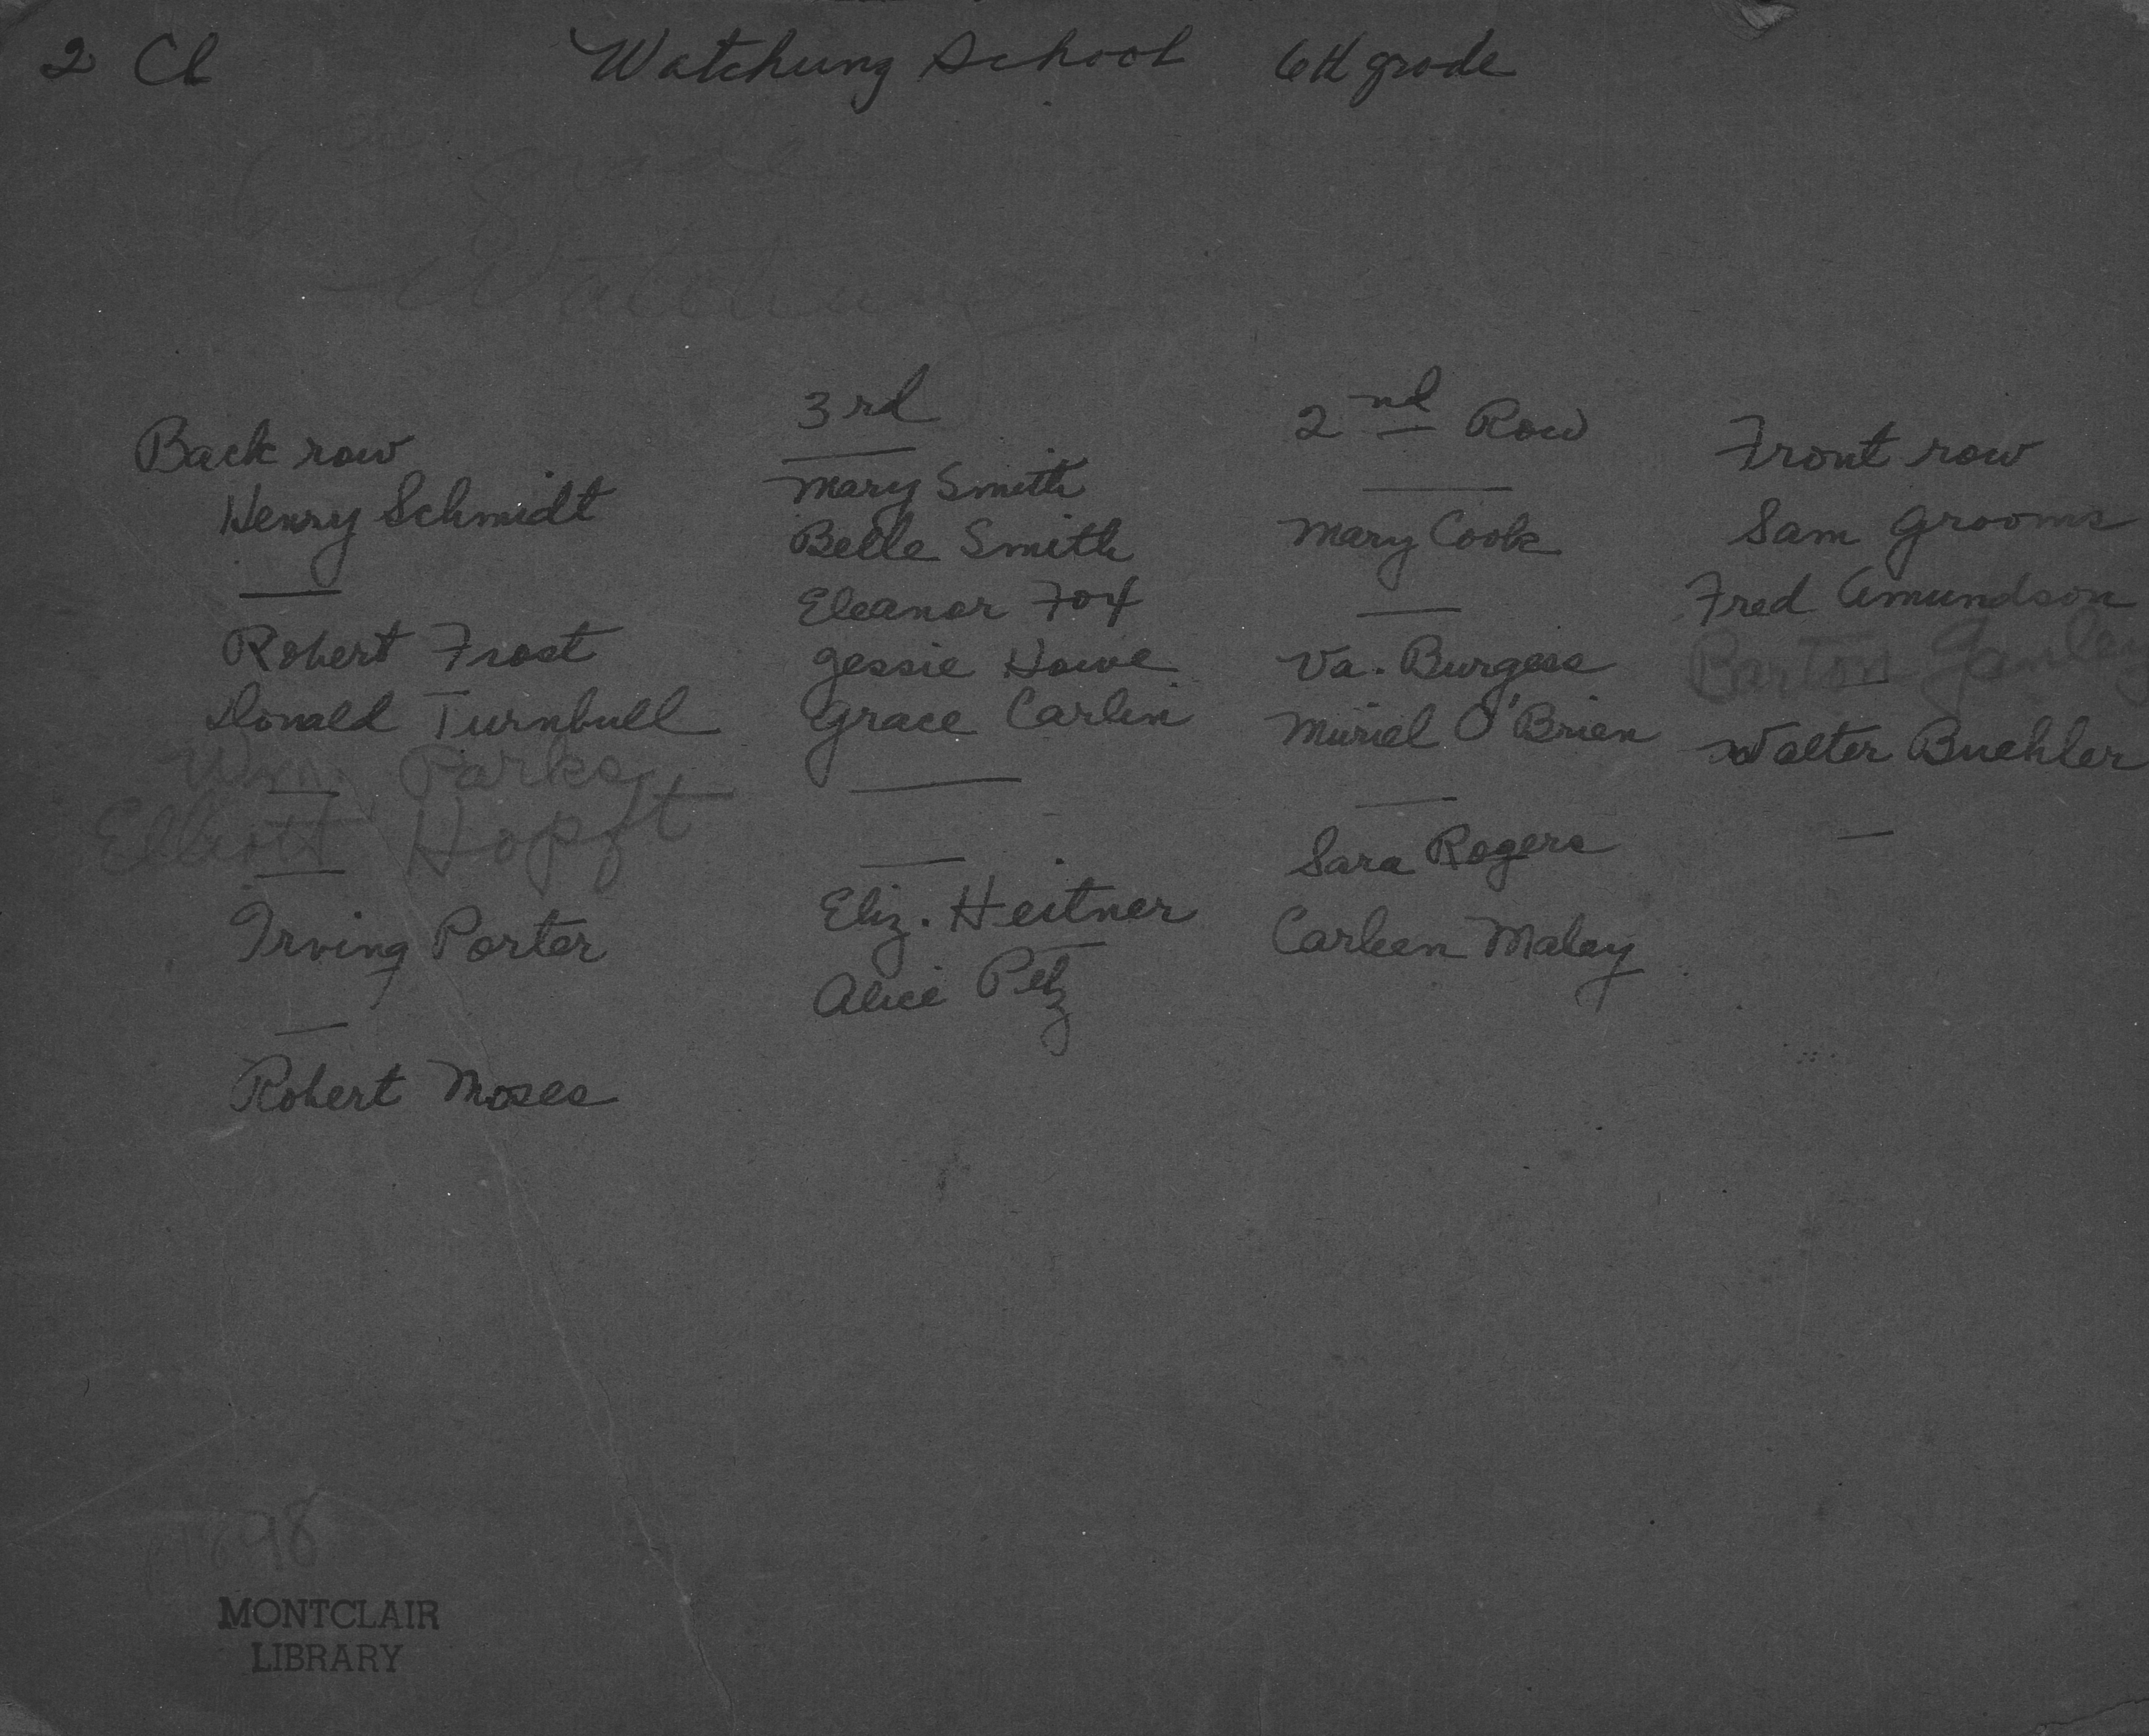 2 Cl Watchung School 6th grade
grade
Watchung
Back row
Henry Schmidt
—
Robert Frost
Donald Turnbull
Wm. Parks
—
Elliott Hopft
—
Irving Porter
—
Robert Moses
3rd
—
Mary Smith
Belle Smith
Eleanor Fox
Jessie Howe
Grace Carlin
—
—
Eliz. Heitner
Alice Petz
2nd Row
—
Mary Cook
—
Va. Burgess
Muriel O'Brien
—
Sara Rogers
Carleen Maley
Front row
Sam Grooms
Fred Amundson
Barton
—
Walter Buehler
—
1898
MONTCLAIR
LIBRARY